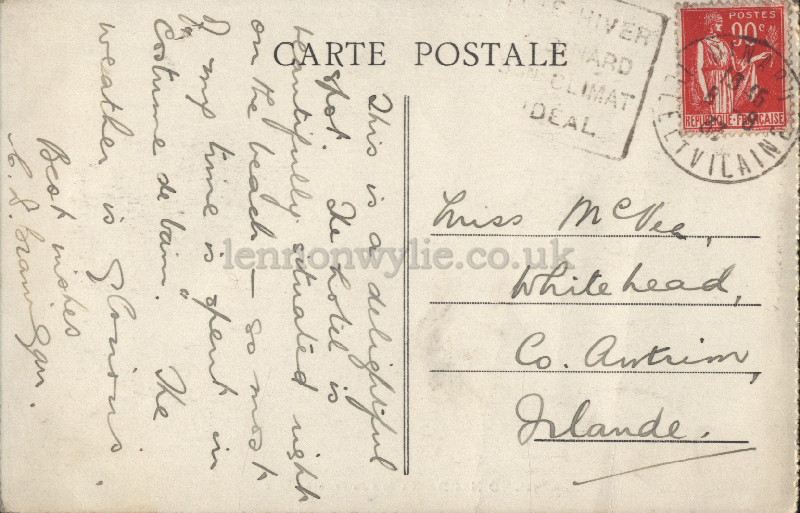 CARTE POSTALE
HIVER
NARD
CLIMAT
IDÉAL
POSTES
90c
REPUBLIQUE-FRANÇAISE
ETVILAINE
This is a delightful
spot. The hotel is
beautifully situated right
on the beach — so most
of my time is spent in
"Costume de bain." The
weather is glorious.
Best wishes
Miss McVea,
Whitehead,
Co. Antrim,
Irlande.
lennonwylie.co.uk